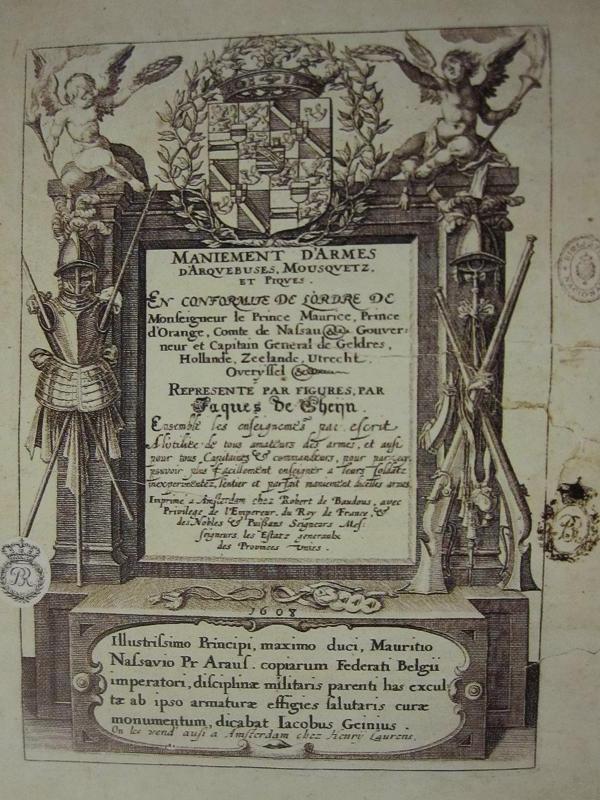 MANIEMENT D'ARMES
D'ARQVEBUSES, MOUSQVETZ,
ET PIQVES.
EN CONFORMITE DE L'ORDRE DE
Monseigneur le Prince Maurice, Prince
d'Orange, Comte de Nassau &c. Gouver⸗
neur et Capitain General de Geldres,
Hollande, Zeelande, Utrecht,
Overyssel &c.
REPRESENTE PAR FIGURES, PAR
Jaques de Gheyn
Ensemble les enseignemẽs par escrit
A l'utilitee de tous amateurs des armes, et ausi
pour tous Capitaines & commandeurs, pour par cecy
pouvoir plus facillement enseigner a leurs soldatz
inexperimentez, l'entier et parfait maniement dicelles armes.
Imprimé a Amsterdam chez Robert de Baudous, avec
Privilege de l'Empereur, du Roy de France, &
des Nobles & Puissans Seigneurs Mes⸗
seigneurs les Estatz generaulx
des Provinces Unies.
1608
Illustrissimo Principi, maximo duci, Mauritio
Nassavio Pr Araus. copiarum Federati Belgii
imperatori, disciplinæ militaris parenti has excul
tæ ab ipso armaturæ effigies salutaris curæ
monumentum, dicabat Iacobus Geinius.
On les vend ausi a Amsterdam chez Henry Laurens.